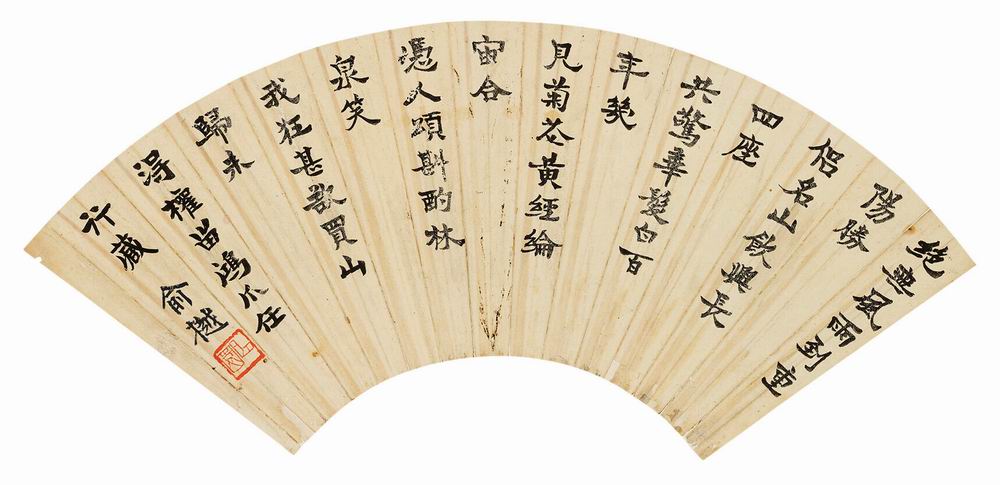 絶無風雨到重
陽勝
侶名山飲興長
四座
共驚華髮白百
年幾
見菊花黃經綸
宙合
憑人頌斟酌林
泉笑
我狂甚欲買山
歸未
得權留鴻爪任
行藏 俞樾